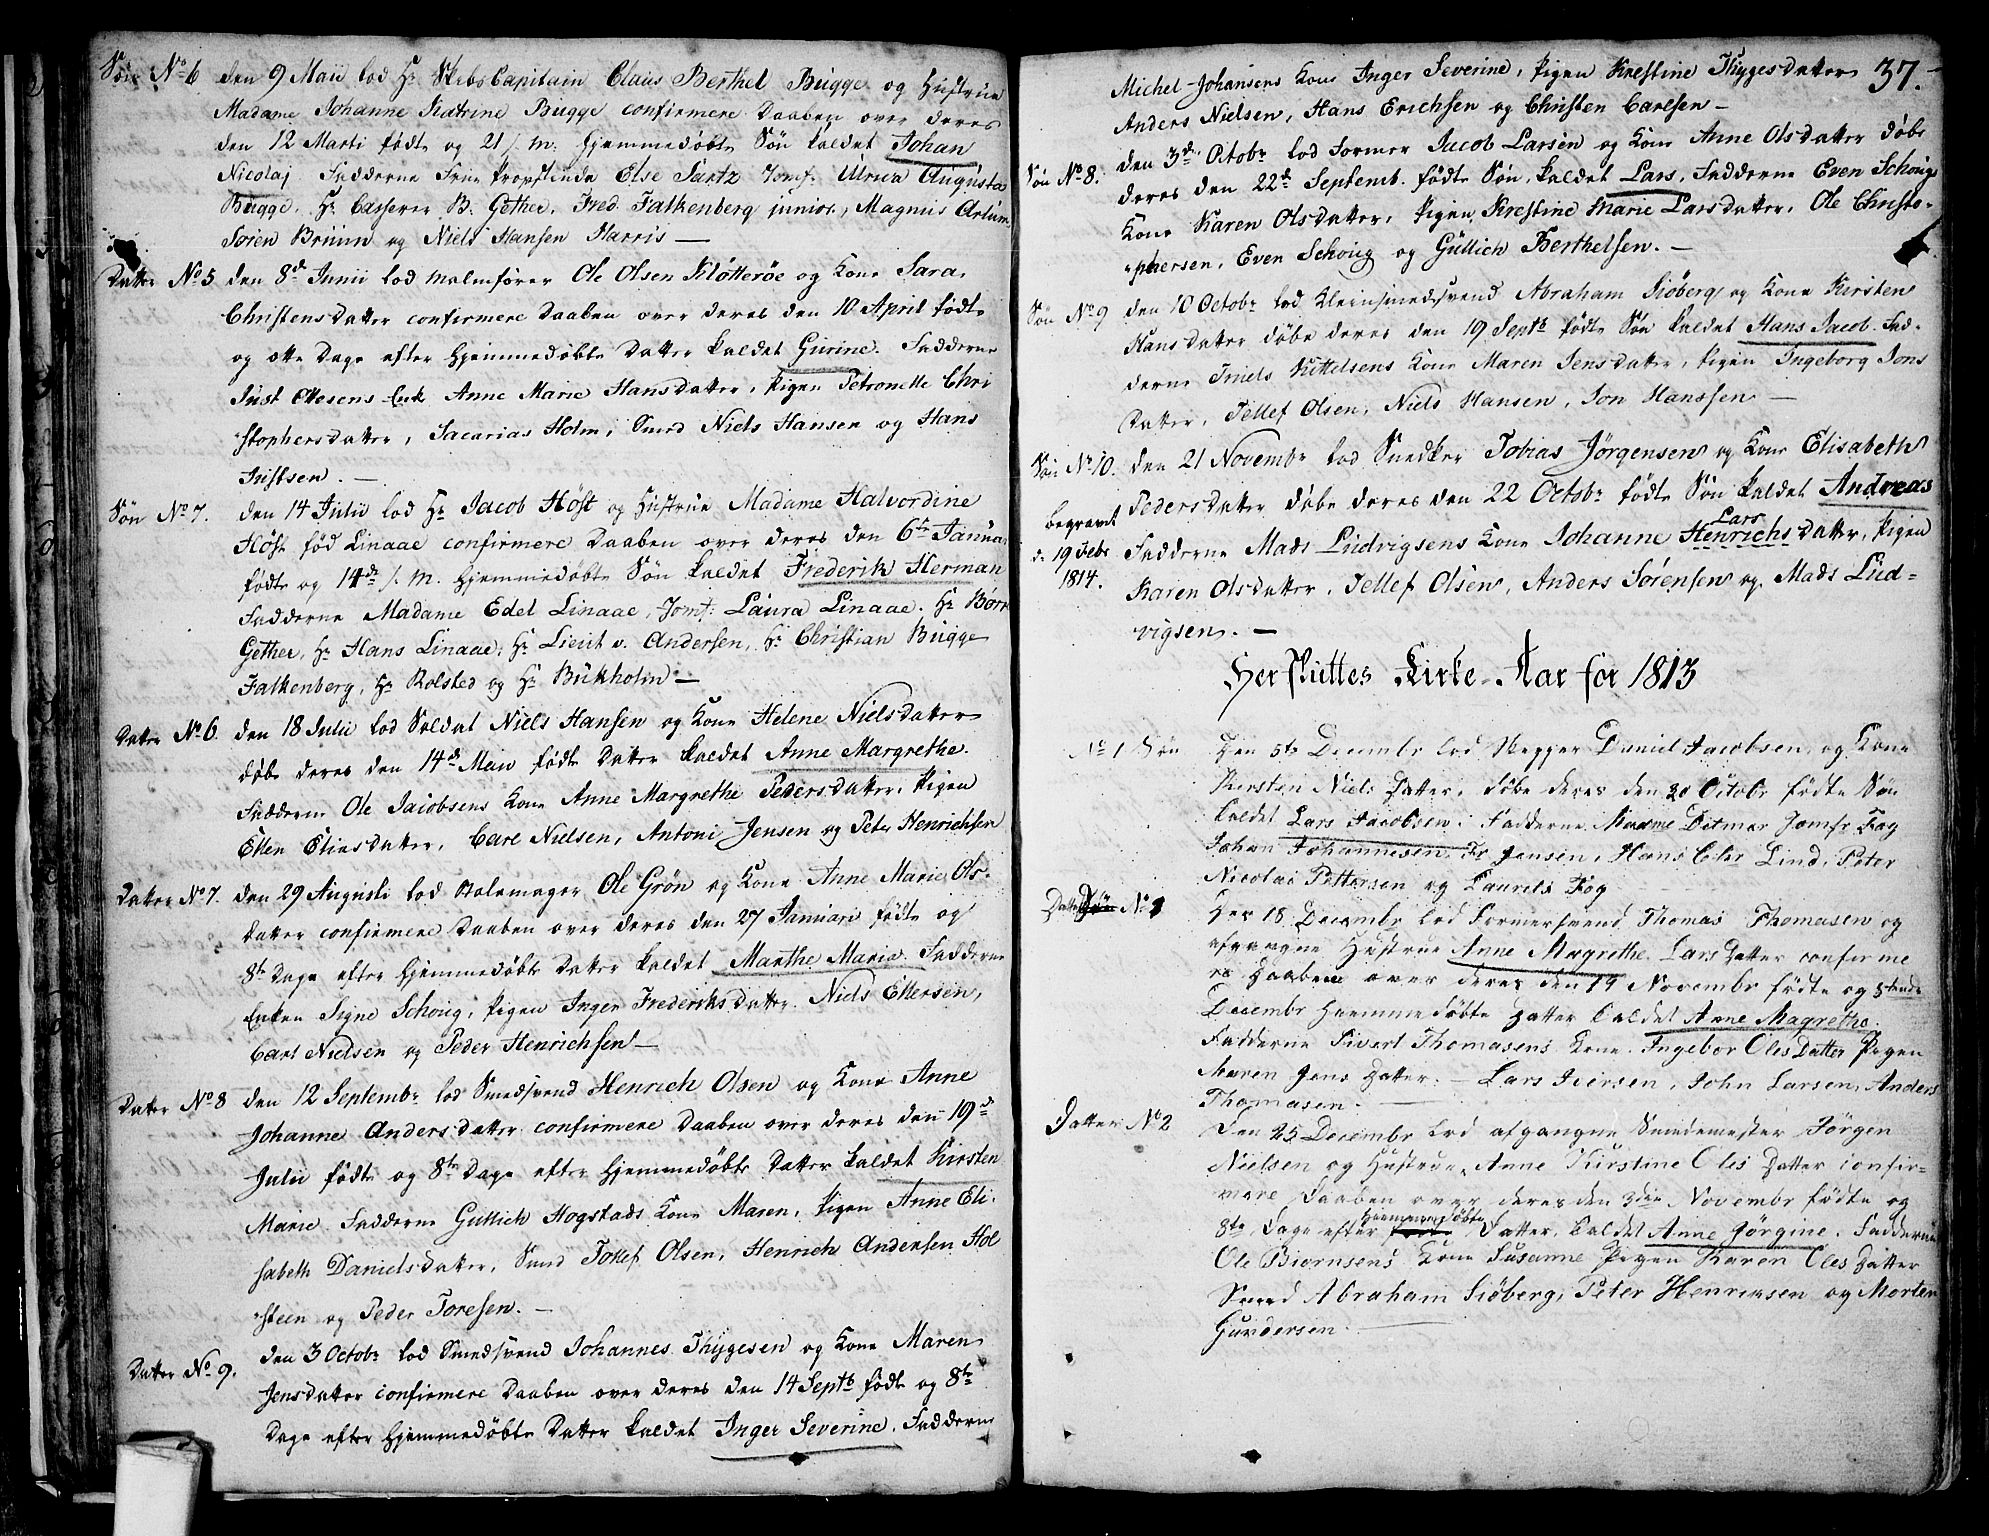 Søn No 6 den 9 Maii lod Hr SkibsCapitain Claus Berthel Bugge og Hustrue
Madame Johanne Katrine Bugge confirmere Daaben over deres
den 12 Marti født og 21 s. m. hjemmedøbte Søn kaldet Johan
Nicolaj. Fadderne Frue Provstinde Else Sartz Jomf: Ulrica Augusta
Bugge, Hr Casserer B. Gether, Fred. Falkenberg junior, Magnus
Søren Bruun og Niels Hansen Harris —
Datter No 5 den 8de Junii lod malmfører Ole Olsen Kløtterøe og Kone Sara
Christensdatter confirmere Daaben over deres den 10 April fødte
og otte Dage efter hjemmedøbte Datter kaldet Gurine. Fadderne
Just Ellesens Enke Anne Marie Hansdatter, Pigen Petronelle Chri
stophersdatter, Sacarias Holm, Smed Niels Hansen og Hans
Justsen. —
Søn No 7. den 14 Julii lod Hr Jacob Høst og Hustrue Madame Halvordine
Høst fød Linaae confirmere Daaben over deres den 6te Januar
fødte og 14de s. m. hjemmedøbte Søn kaldet Frederik Herman
Fadderne Madame Edel Linaae, Jomf: Laura Linaae. Hr Børre
Gether, Hr Hans Linaae, Hr Lieut v. Andersen, Hr Christian Bugge
Falkenberg, Hr Rolsted og Hr Bukholm —
Datter No 6. den 18 Julii lod Soldat Niels Hansen og Kone Helene Nielsdatter
døbe deres den 14de Maii fødte Datter kaldet Anne Margrethe.
Fadderne Ole Jacobsens Kone Anne Margrethe Pedersdatter, Pigen
Ellen Eliasdatter, Carl Nielsen, Antoni Jensen og Peter Henrichsen
Datter No 7. den 29 Augusti lod Bælemager Ole Grøn og Kone Anne Marie Ols-
datter confirmere Daaben over deres den 27 Januari fødte og
8te Dage efter hjemmedøbte Datter kaldet Marthe Maria. Fadderne
Enken Signe Schoug, Pigen Inger Frederiksdatter. Niels Ellersen,
Carl Nielsen og Peder Henrichsen —
Datter No 8 den 12 Septembr lod Smedsvend Henrich Olsen og Kone Anne
Johanne Andersdatter confirmere Daaben over deres den 19de
Julii fødte og 8te Dage efter hjemmedøbte Datter kaldet Kirsten
Marie. Fadderne Gullich Hogstads Kone Maren, Pigen Anne Eli-
sabeth Danielsdatter, Smed Tollef Olsen, Henrich Andersen Hol
steen og Peder Toresen. —
Datter No 9. den 3 Octobr lod Smedsvend Johannes Thygesen og Kone Maren
Jensdatter confirmere Daaben over deres den 14 Septb fødte og 8te
Dage efter hjemmedøbte Datter kaldet Inger Severine. Fadderne
37.
Michel Johansens Kone Inger Severine, Pigen Krestine Thygesdatter
Anders Nielsen, Hans Erichsen og Christen Carlsen —
Søn No 8. den 3de Octobr lod Former Jacob Larsen og Kone Anne Olsdatter døbe
deres den 22de Septemb. fødte Søn, kaldet Lars, Fadderne Even Schougs
Kone Karen Olsdatter, Pigen Krestine Marie Larsdatter, Ole Christo-
phersen, Even Schoug og Gullich Berthelsen. —
Søn No 9 den 10 Octobr lod Kleinsmedsvend Abraham Siøberg og Kone Kirsten
Hansdatter døbe deres den 19 Septb fødte Søn kaldet Hans Jacob. Fad-
derne Truels Kittelsens Kone Maren Jensdatter, Pigen Ingeborg Jons
datter, Tellef Olsen, Niels Hansen, Jon Hanssen —
Søn No 10. den 21 Novembr lod Snedker Tobias Jørgensen og Kone Elisabeth
Pedersdatter døbe deres den 22 Octobr fødte Søn kaldet Andreas
begravet
d. 19 Febr
1814.
Fadderne Mads Ludvigsens Kone Johanne Henrichs Lars datter, Pigen
Karen Olsdatter, Tellef Olsen, Anders Sørensen og Mads Lud-
vigsen. —
Her sluttes Kirke-Aar for 1813
No 1 Søn Den 5te Decembr lod Stepper Daniel Jacobsen og Kone
Kirsten Niels Datter, døbe deres den 20 Octobr fødte Søn
kaldet Lars Jacobsen. Fadderne Madme Ditmar Jomfr Fog
Johan Johannesen, Fr Jensen, Hans Lind, Peter
Nicolai Pettersen og Laurets Fog
Datter Søn No 1 Den 18 Decembr lod Formersvend Thomas Thomasen og
afgangne Hustrue Anne Magrethe Lars Datter confirme
re Daaben over deres den 19 Novembr fødte og 5tende
Decembr hiemmedøbte Datter kaldet Anne Magrethe.
Fadderne Sivert Thomasens Kone. Ingebor Oles Datter Pigen
Maren Jens Datter. — Lars Iversen, John Larsen, Anders
Thomasen. —
Datter No 2 Den 25 Decembr lod afgangne Smedemester Jørgen
Nielsen og Hustrue, Anne Kirstine Oles Datter confir-
mere Daaben over deres den 3die Novembr fødte og
8te Dage efter hiemmedøbte Datter, kaldet Anne Jørgine. Fadderne
Ole Biørnsens Kone Susanne Pigen Karen Oles Datter
Smed Abraham Siøberg, Peter Henriksen og Morten
Gundersen. —